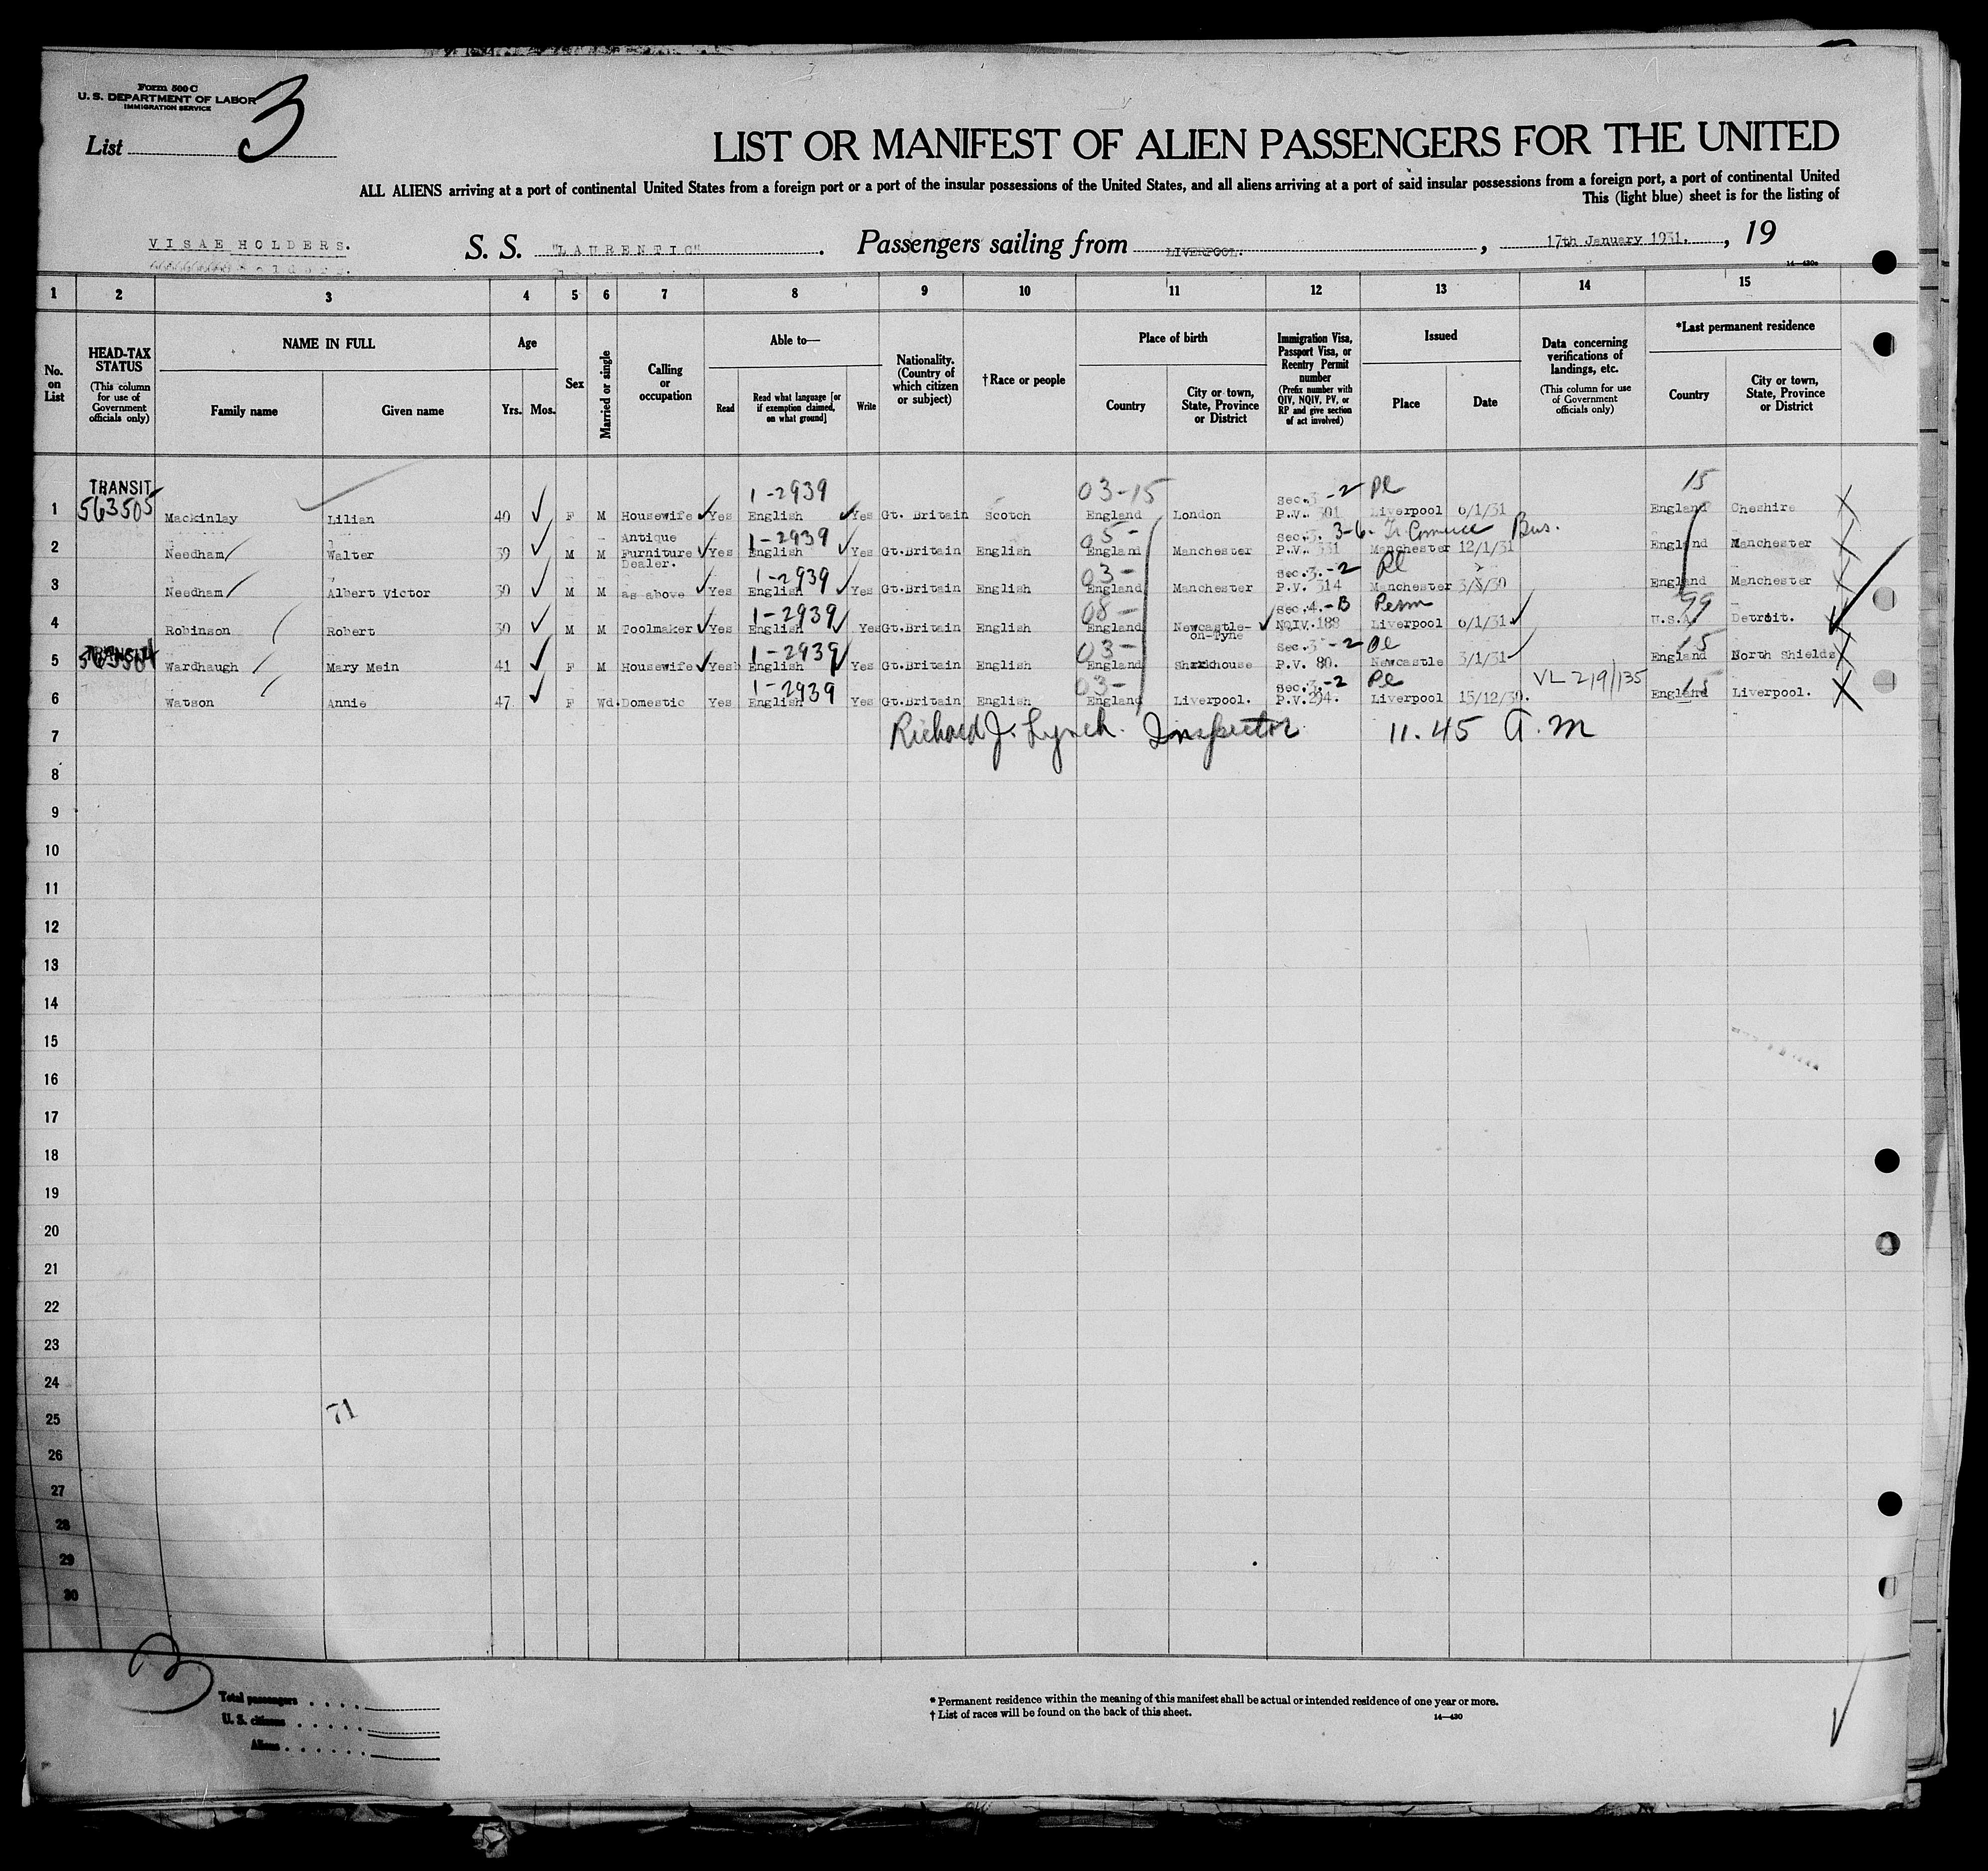 Form 500 C
U. S. DEPARTMENT OF LABOR
IMMIGRATION SERVICE
List 3
LIST OR MANIFEST OF ALIEN PASSENGERS FOR THE UNITED
ALL ALIENS arriving at a port of continental United States from a foreign port or a port of the insular possessions of the United States, and all aliens arriving at a port of said insular possessions from a foreign port, a port of continental United
This (light blue) sheet is for the listing of
VISAE HOLDERS. S. S. "LAURENTIC". Passengers sailing from LIVERPOOL. , 17th January 1931. , 19
14—430c
1 2 3 4 5 6 7 8 9 10 11 12 13 14 15
No. on List
HEAD-TAX STATUS (This column for use of Government officials only)
NAME IN FULL
Family name Given name
Age
Yrs. Mos.
Sex
Married or single
Calling or occupation
Able to—
Read Read what language [or if exemption claimed, on what ground] Write
Nationality. (Country of which citizen or subject)
†Race or people
Place of birth
Country City or town, State, Province or District
Immigration Visa, Passport Visa, or Reentry Permit number (Prefix number with QIV, NQIV, PV, or RP and give section of act involved)
Issued
Place Date
Data concerning verifications of landings, etc. (This column for use of Government officials only)
*Last permanent residence
Country City or town, State, Province or District
TRANSIT 1-2939 03-15 sec.3 -2 Pl 15
1 563505 Mackinlay Lilian 40 F M Housewife Yes English Yes Gt. Britain Scotch England London P.V. 301 Liverpool 6/1/31 England Cheshire
Antique 1-2939 05- sec.3. 3-6. Bus.
2 Needham Walter 39 M M Furniture Yes English Yes Gt.Britain English England Manchester P.V. 331 Manchester 12/1/31 England Manchester
Dealer. 1-2939 03- sec.3.-2 Pl
3 Needham Albert Victor 30 M M as above Yes English Yes Gt.Britain English England Manchester P.V. 314 Manchester England Manchester
1-2939 08- sec.4.-B Perm 99
4 Robinson Robert 30 M M Toolmaker Yes English Yes Gt.Britain English England Newcastle- NQIV.188 Liverpool 6/1/31 U.S.A. Detroit.
on-Tyne
TRANSIT 1-2939 03- sec.3 -2 Pl 15
5 Wardhaugh Mary Mein 41 F M Housewife Yes English Yes Gt.Britain English England P.V. 80. Newcastle 3/1/31 England North Shields
1-2939 03- sec.3.-2 Pl VL 219/135 15
6 Watson Annie 47 F Wd. Domestic Yes English Yes Gt.Britain English England Liverpool. P.V.294. Liverpool 15/12/30. England Liverpool.
7 Richard J. Lynch. Inspector 11.45 A.M
8
9
10
11
12
13
14
15
16
17
18
19
20
21
22
23
24
25 71
26
27
28
29
30
Total passengers
U. S. citizens
Aliens
* Permanent residence within the meaning of this manifest shall be actual or intended residence of one year or more.
† List of races will be found on the back of this sheet.
14—430